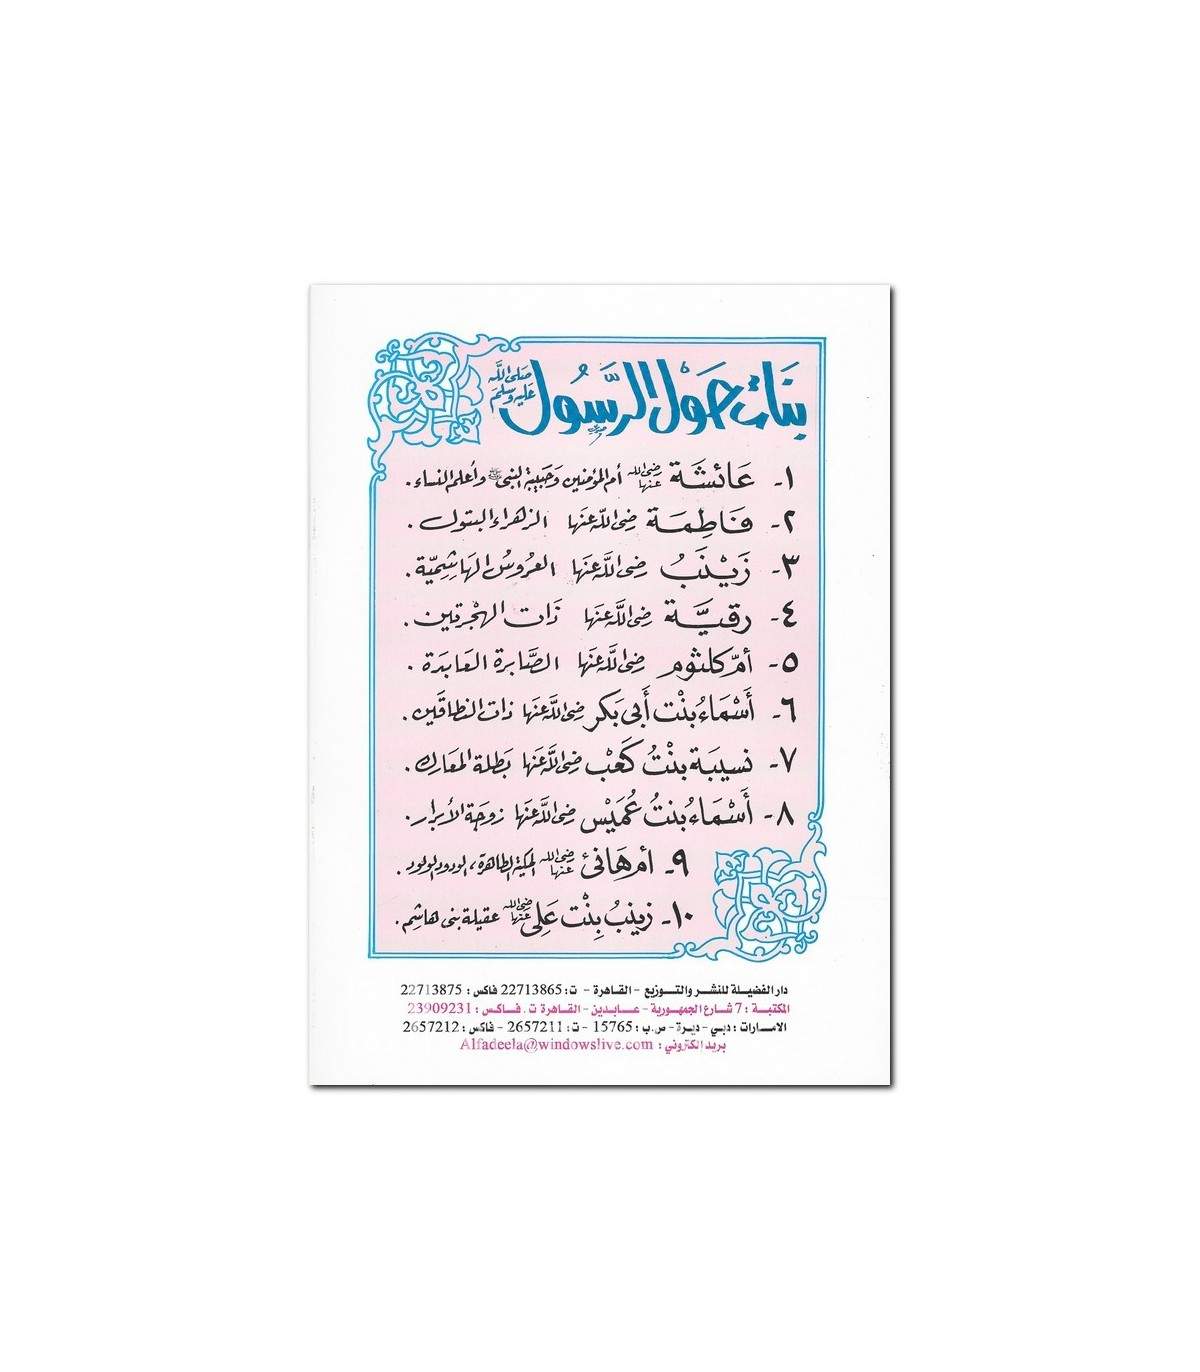 بَنَات حَوْل الرَّسُول صَلى اللَّه عَليْه وسَلمَ
١- عَائشَة رضى الله عنها أم المؤمنين وَحَبيبة النبى ﷺ وأعلم النساء.
٢- فَاطِمَة رضى اللَّه عَنهَا الزهراء البتول.
٣- زَيْنَبُ رضى اللَّه عَنهَا العرُوسُ الهَاشِميّة.
٤- رقيَّة رضى اللَّه عَنهَا ذَات الهجْرتين.
٥- أمّ كلثوم رضى اللَّه عَنهَا الصَّابرة العَابدَة.
٦- أَسْمَاءُ بنْت أَبى بَكر رضى اللَّه عَنهَا ذات النطاقَين.
٧- نسيبَة بنْتُ كَعَبْ رضى اللَّه عَنهَا بَطلة المعَارك.
٨- أَسْمَاءُ بنتُ عُمَيْس رضى اللَّه عَنهَا زوجَة الأبرار.
٩- أم هَانئ رضى الله عنها المكية الطاهرة، الودود الولود.
١٠- زينبُ بِنْت عَلى رضى الله عنها عقيلة بنى هاشم.
دار الفضيلة للنشر والتوزيع - القاهرة - ت: 22713865 فاكس: 22713875
المكتبة: 7 شارع الجمهورية - عابدين - القاهرة ت. فاكس: 23909231
الامارات: دبي - ديرة - ص.ب: 15765 - ت: 2657211 - فاكس: 2657212
بريد الكتروني: Alfadeela@windowslive.com